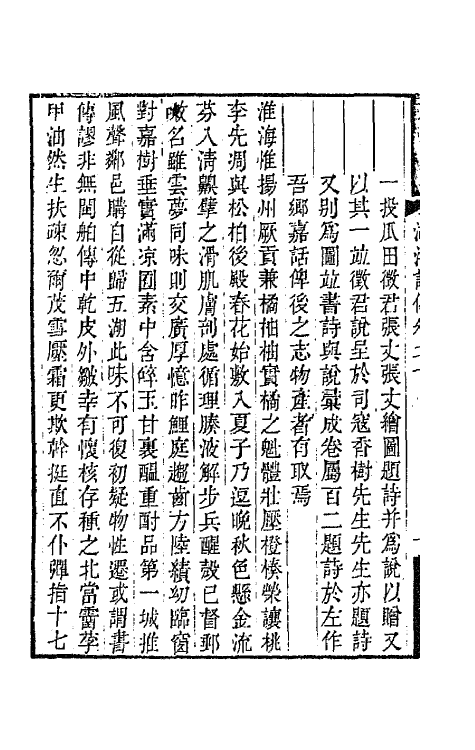 一投瓜田徵君張丈張丈繪圖題詩并爲說以贈又
以其一竝徵君說呈於司寇香樹先生先生亦題詩
又別爲圖竝書詩與說彙成卷屬百二題詩於左作
吾鄉嘉話俾後之志物產者有取焉
淮海惟揚州厥貢兼橘柚柚實橘之魁體壯壓橙楱榮讓桃
李先凋與松柏後殿春花始敷入夏子乃逗晚秋色懸金流
芬入清齅擘之滑肌膚剖處循理腠液解步兵酲殼已督郵
嗽名雖雲夢同味則交廣厚憶昨鯉庭趨齒方陸績幼臨窗
對嘉樹垂實滿凉囿素中含碎玉甘裏醞重酎品第一城推
風聲鄰邑購自從歸五湖此味不可復初疑物性遷或謂書
傳謬非無閩舶傳中乾皮外皺幸有懷核存種之北當霤孳
甲油然生扶疎忽爾茂雪壓霜更欺幹挺直不仆彈指十七